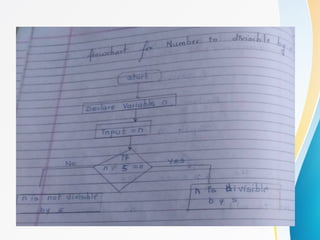 flowchart for Number to divisible by 5
start
Declare Variable n
Input = n
If
No
Yes
n % 5 == 0
n is divisible
by 5
n is not divisible
by 5